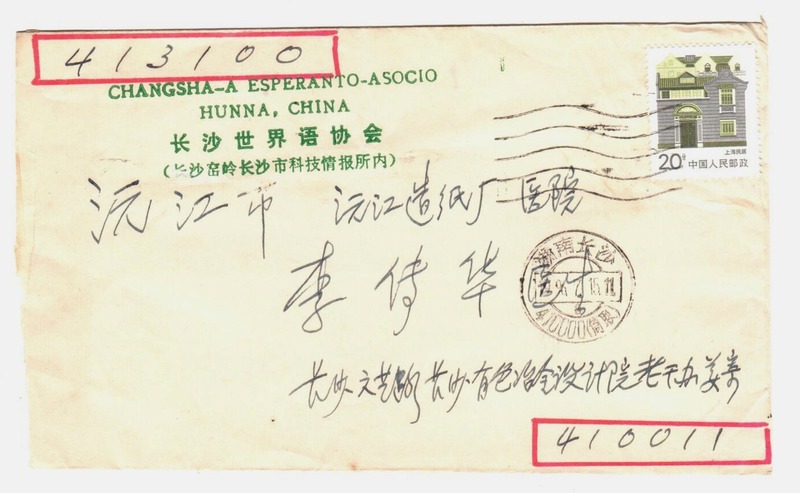 413100
CHANGSHA-A ESPERANTO-ASOCIO
HUNNA, CHINA
长沙世界语协会
(长沙窑岭长沙市科技情报所内)
上海民居
20分 中国人民邮政
沅江市 沅江造纸厂医院
李传华
湖南长沙
15.11
410000
长沙文艺路长沙有色冶金设计院老干办姜
410011